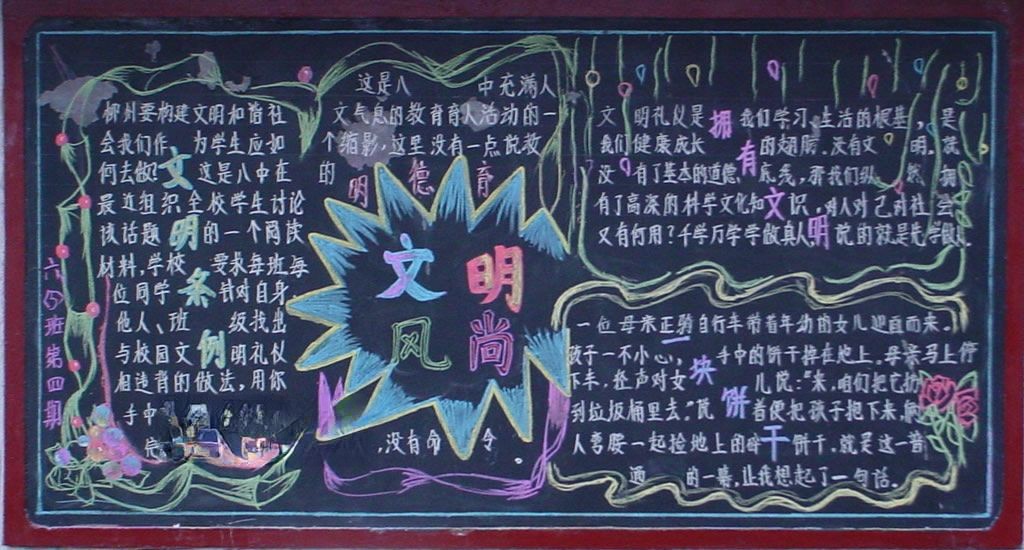 六(5)班第四期
柳州要构建文明和谐社
会我们作 为学生应如
何去做? 这是八中在
最近组织全校学生讨论
该话题 的一个阅读
材料,学校 要求每班每
位同学 针对自身
他人、班 级找出
与校园文 明礼仪
相违背的做法,用你
手中
文明条例
这是八 中充满人
文气息的教育育人活动的一
个缩影,这里没有一点说教
的
明德育
文明
风尚
,没有命 令。
文 明礼仪是 我们学习、生活的根基,是
我们健康成长 的翅膀.没有文 明.就
没 有了基本的道德 底线,那我们纵 然 拥
有了高深的科学文化知 识,对人对己对社 会
又有何用?千学万学学做真人, 说的就是先学做人.
拥有文明
一位母亲正骑自行车带着年幼的女儿迎面而来.
孩子一不小心, 手中的饼干掉在地上.母亲马上停
下来,轻声对女 儿说:"来,咱们把它扔
到垃圾桶里去."说 着便把孩子抱下来,俩
人弯腰一起捡地上的碎 饼干.就是这一普
通 的一幕,让我想起了一句话.
一块饼干